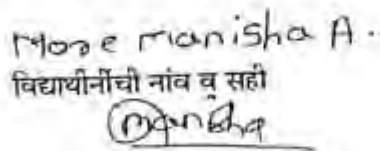 More manisha A.
विद्यार्थीनीची नांव व सही
manisha